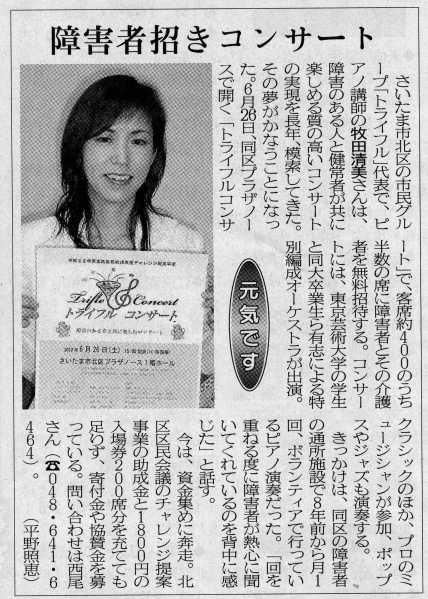 障害者招きコンサート
さいたま市北区の市民グル
ープ「トライフル」代表で、ピ
アノ講師の牧田清美さんは、
障害のある人と健常者が共に
楽しめる質の高いコンサート
の実現を長年、模索してきた。
その夢がかなうことになっ
た。6月26日、同区プラザノー
スで開く「トライフルコンサ
ート」で、客席約400のうち
半数の席に障害者とその介護
者を無料招待する。コンサー
トには、東京芸術大学の学生
と同大卒業生ら有志による特
別編成オーケストラが出演。
元気です
クラシックのほか、プロのミ
ュージシャンが参加、ポップ
スやジャズも演奏する。
きっかけは、同区の障害者
の通所施設で8年前から月1
回、ボランティアで行ってい
るピアノ演奏だった。「回を
重ねる度に障害者が熱心に聞
いてくれているのを背中に感
じた」と話す。
今は、資金集めに奔走。北
区区民会議のチャレンジ提案
事業の助成金と1800円の
入場券200席分を充てても
足りず、寄付金や協賛金を募
っている。問い合わせは西尾
さん(☎048・641・6
464)。
(平野照恵)
Trifle Concert
トライフル コンサート
6月26日(土)
さいたま市北区プラザノース1階ホール